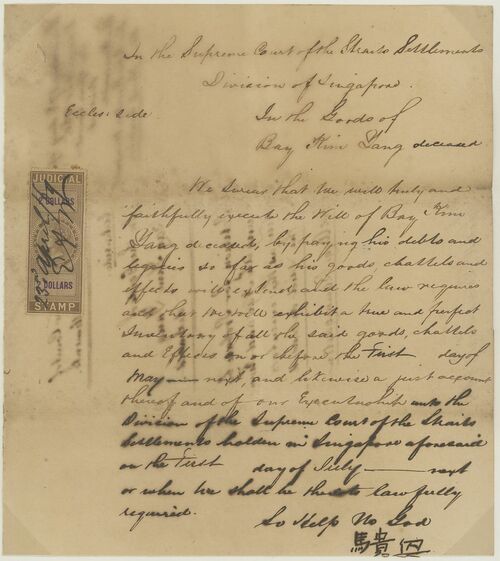 In the Supreme Court of the Straits Settlements
Division of Singapore.
Eccles: side
In the Goods of
Bay Kim Yang deceased
JUDICIAL
2 DOLLARS
DOLLARS
STAMP
23rd April
We swear that we will truly and
faithfully execute the Will of Bay Kim
Yang deceased, by paying his debts and
legacies so far as his goods chattels and
effects will extend and the law requires
and that we will exhibit a true and perfect
Inventory of all the said goods, chattels
and Effects on or before the First day of
May next, and likewise a just account
thereof and of our Executorship unto the
Division of the Supreme Court of the Straits
Settlements holden in Singapore aforesaid
on the First day of July next
or when we shall be thereto lawfully
required.
So Help Us God
馬貴